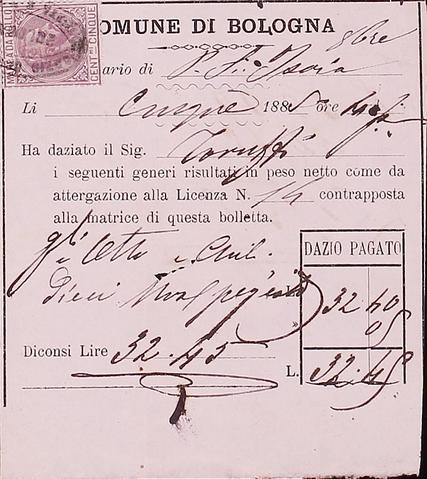 MARCA DA BOLLO
CENT. DI CINQUE
COMUNE DI BOLOGNA
8bre
ario di P. S. Isaia
Li Cinque 188 ore
Ha daziato il Sig.
i seguenti generi risultati in peso netto come da
attergazione alla Licenza N. 14 contrapposta
alla matrice di questa bolletta.
DAZIO PAGATO
Otto
Dieci 32 40
05
Diconsi Lire 32.45
L. 32.45